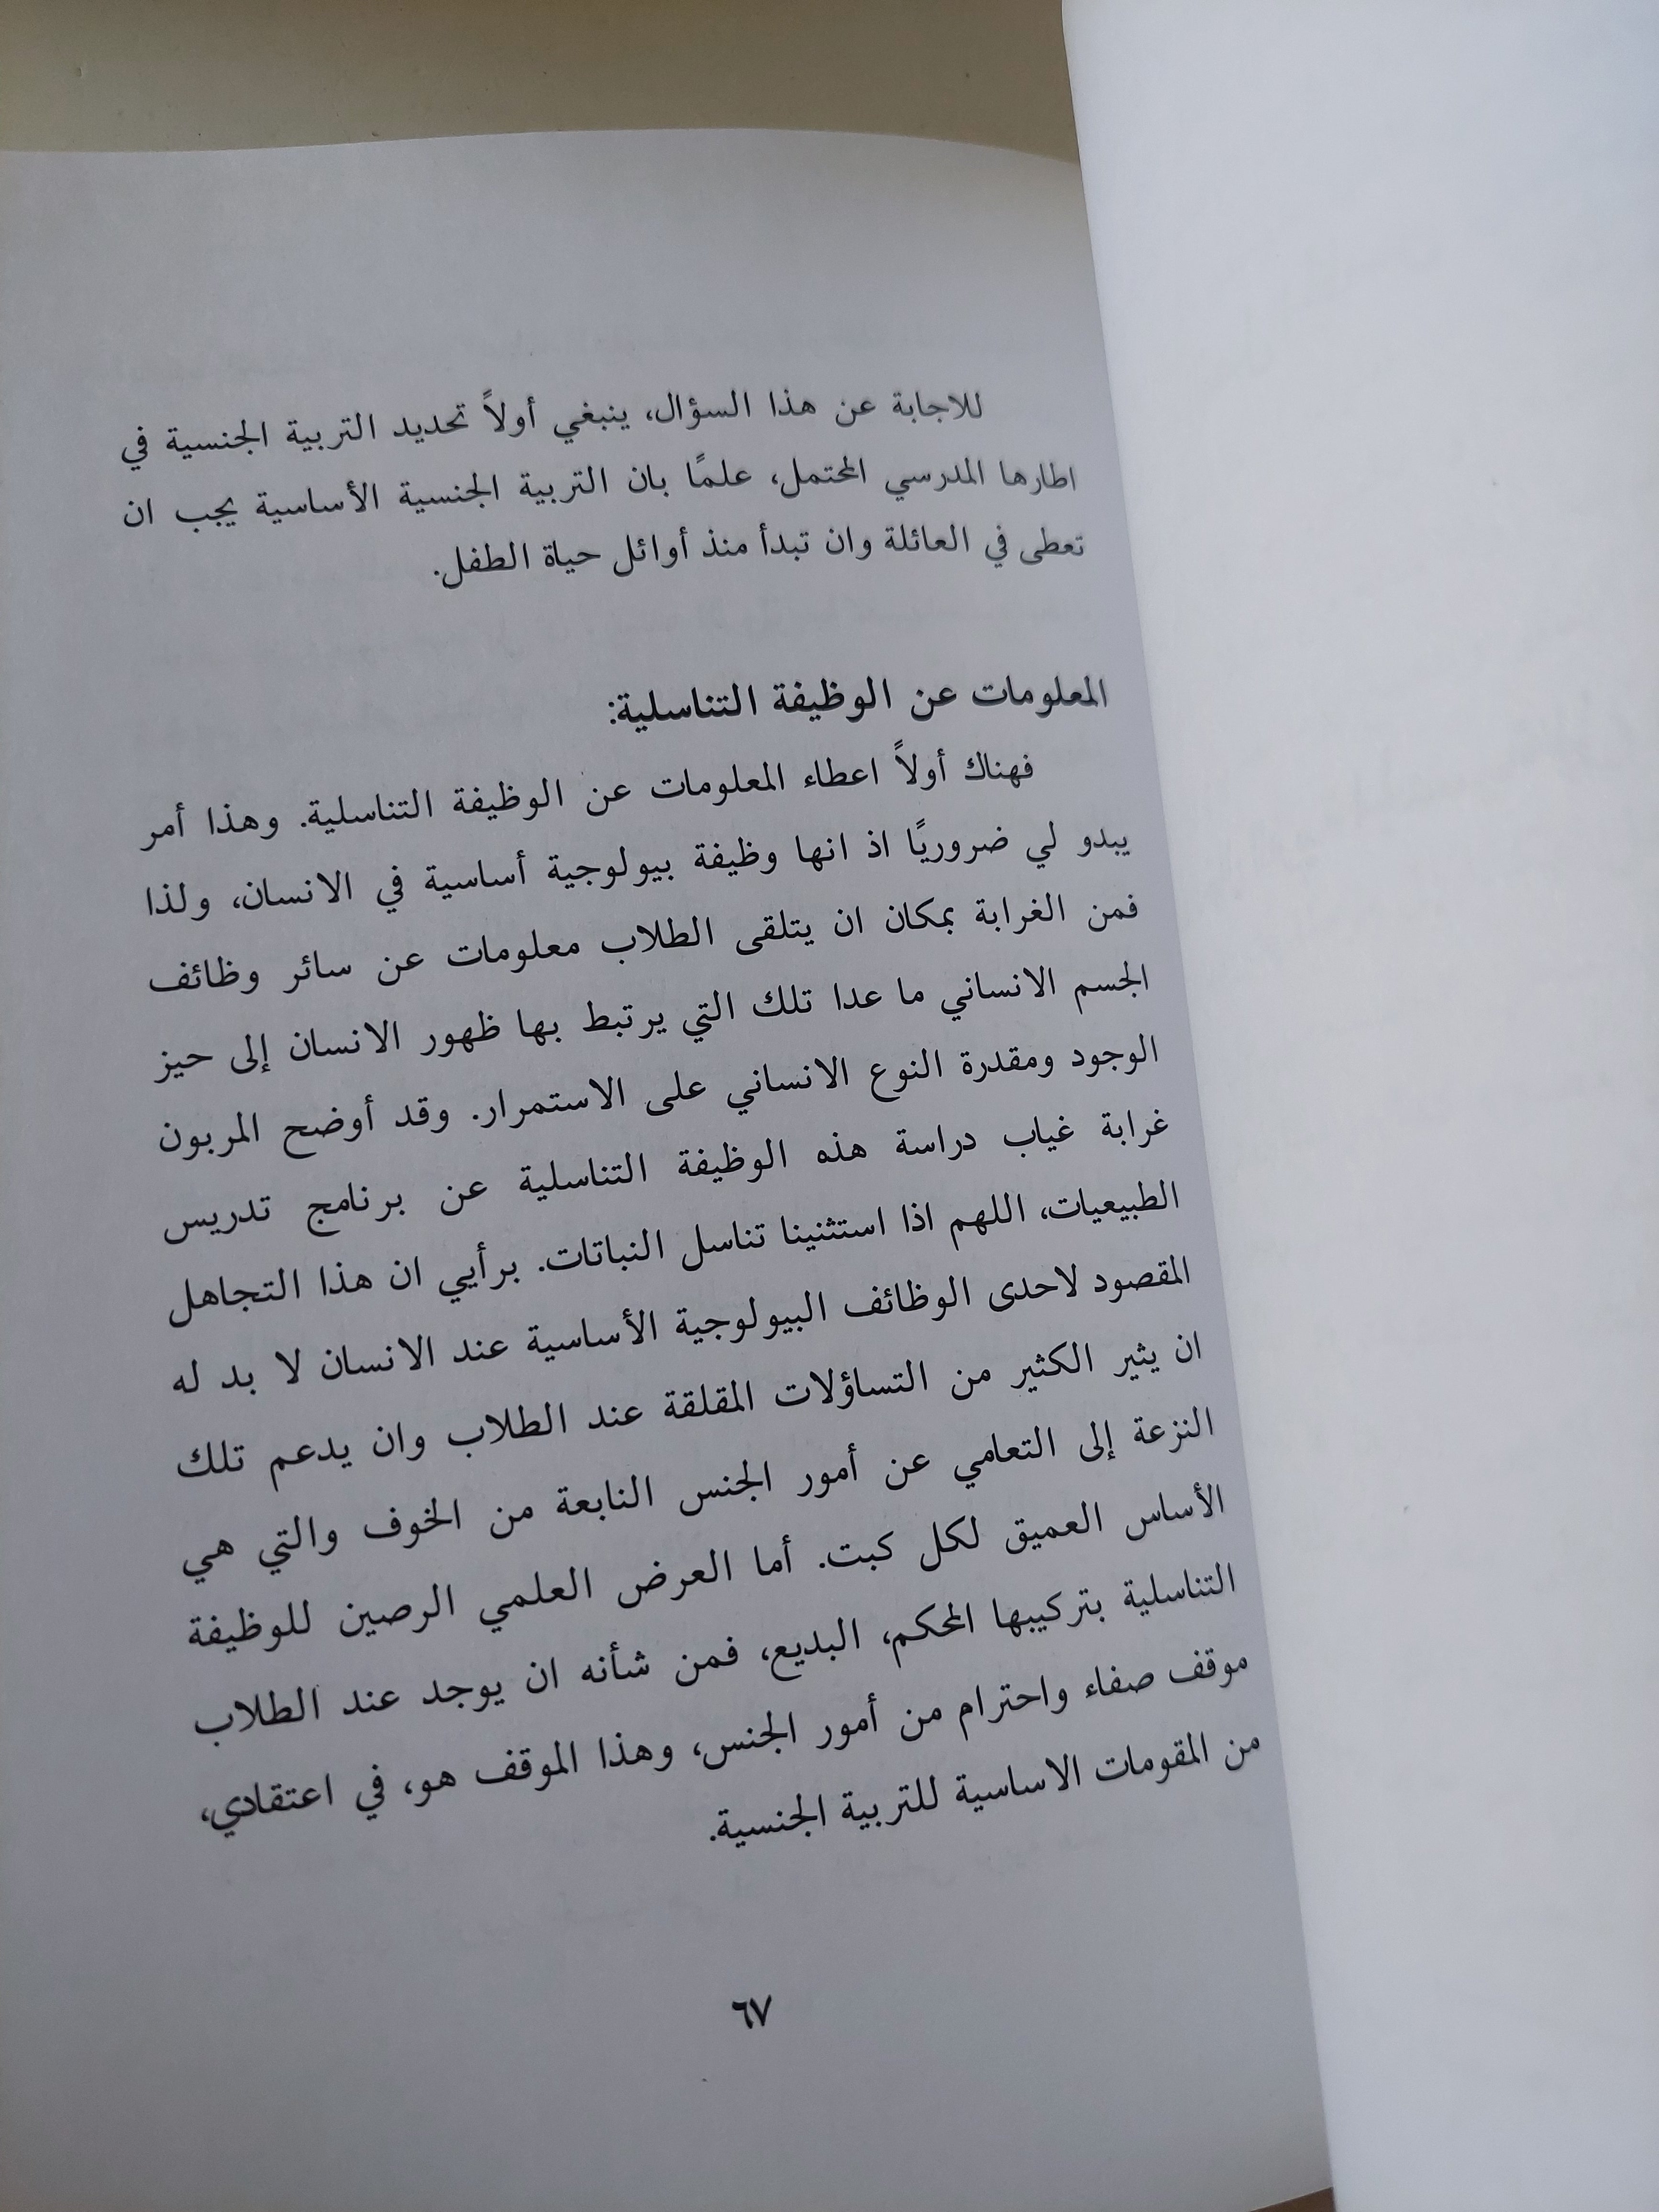 للاجابة عن هذا السؤال، ينبغي أولاً تحديد التربية الجنسية في
اطارها المدرسي المحتمل، علمًا بان التربية الجنسية الأساسية يجب ان
تعطى في العائلة وان تبدأ منذ أوائل حياة الطفل.
المعلومات عن الوظيفة التناسلية:
فهناك أولاً اعطاء المعلومات عن الوظيفة التناسلية. وهذا أمر
يبدو لي ضروريًا اذ انها وظيفة بيولوجية أساسية في الانسان، ولذا
فمن الغرابة بمكان ان يتلقى الطلاب معلومات عن سائر وظائف
الجسم الانساني ما عدا تلك التي يرتبط بها ظهور الانسان إلى حيز
الوجود ومقدرة النوع الانساني على الاستمرار. وقد أوضح المربون
غرابة غياب دراسة هذه الوظيفة التناسلية عن برنامج تدريس
الطبيعيات، اللهم اذا استثنينا تناسل النباتات. برأيي ان هذا التجاهل
المقصود لاحدى الوظائف البيولوجية الأساسية عند الانسان لا بد له
ان يثير الكثير من التساؤلات المقلقة عند الطلاب وان يدعم تلك
النزعة إلى التعامي عن أمور الجنس النابعة من الخوف والتي هي
الأساس العميق لكل كبت. أما العرض العلمي الرصين للوظيفة
التناسلية بتركيبها المحكم، البديع، فمن شأنه ان يوجد عند الطلاب
موقف صفاء واحترام من أمور الجنس، وهذا الموقف هو، في اعتقادي،
من المقومات الاساسية للتربية الجنسية.
٦٧